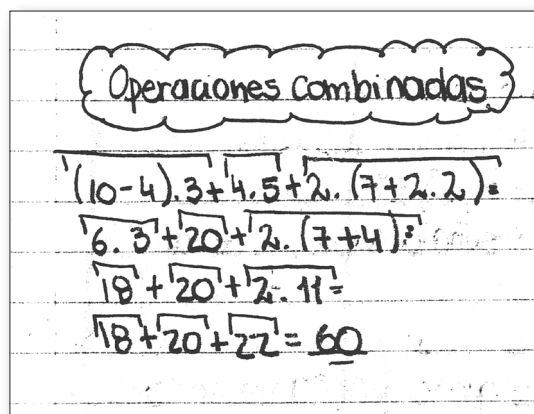 Operaciones combinadas
(10-4).3+4.5+2.(7+2.2)=
6.3+20+2.(7+4)=
18+20+2.11=
18+20+22=60